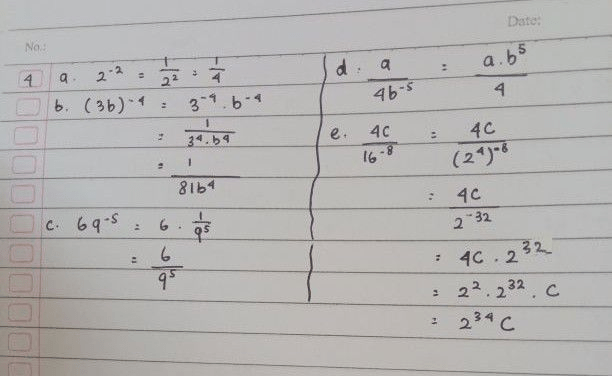 No.:
Date:
4 a. 2⁻² = 1/2² = 1/4
b. (3b)⁻⁴ = 3⁻⁴ . b⁻⁴
= 1/3⁴.b⁴
= 1/81b⁴
c. 6q⁻⁵ = 6 . 1/q⁵
= 6/q⁵
d. a/4b⁻⁵ = a.b⁵/4
e. 4c/16⁻⁸ = 4c/(2⁴)⁻⁸
= 4c/2⁻³²
= 4c . 2³²
= 2² . 2³² . c
= 2³⁴ c